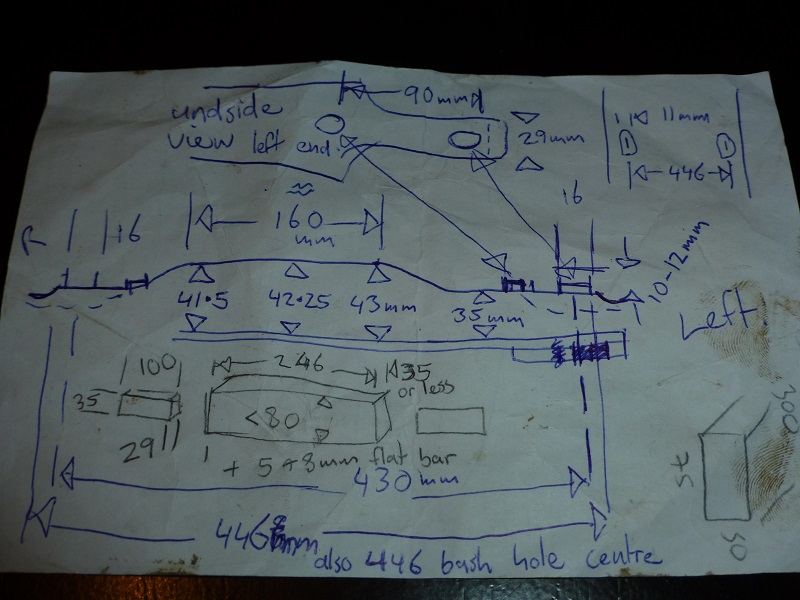 undside
view left end.
90mm
29mm
11mm
446
16
160
mm
R
16
10-12mm
41.5
42.25
43mm
35mm
Left.
100
35
29
246
35
or less
<80
+ 5+8mm flat bar
430mm
446mm
also 446 bash hole centre
300
50